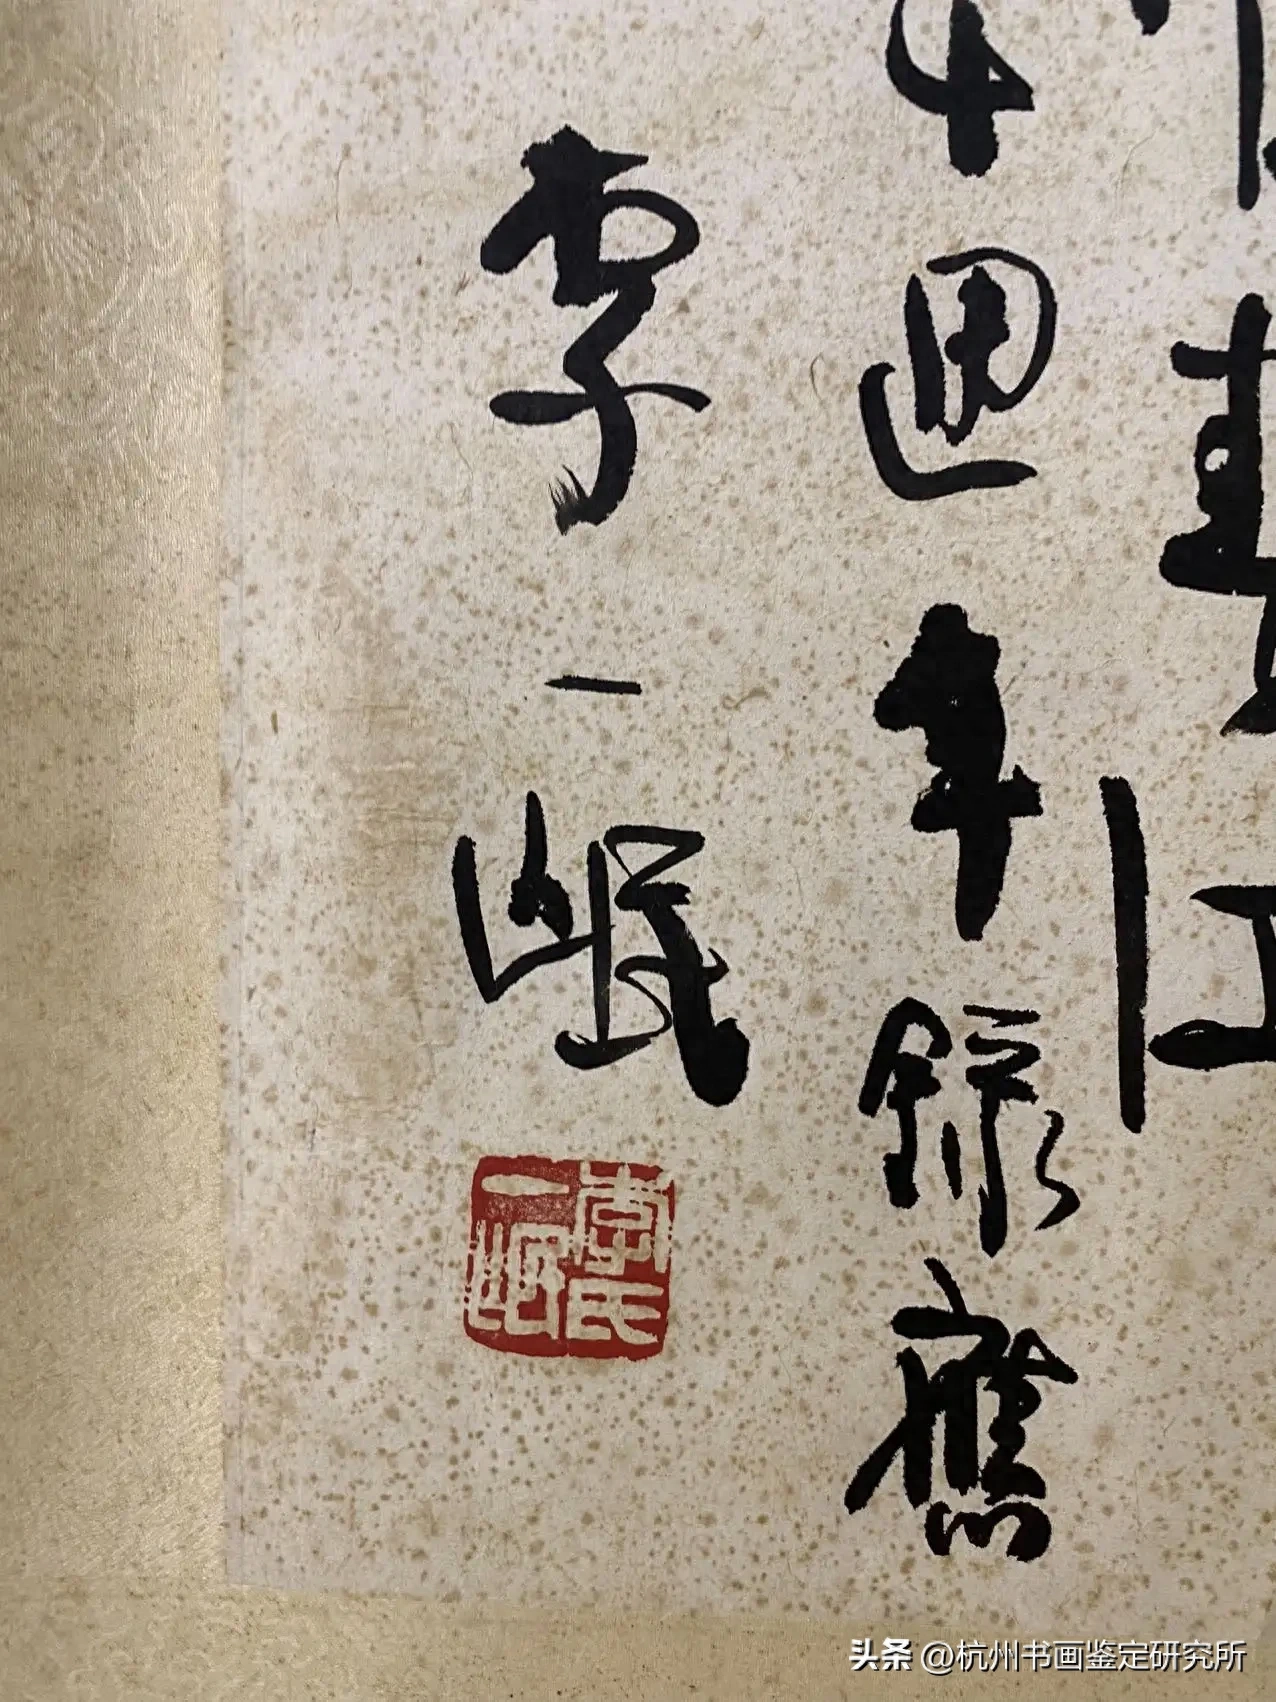 週年錄應
李一氓
李氏一氓
头条 @杭州书画鉴定研究所